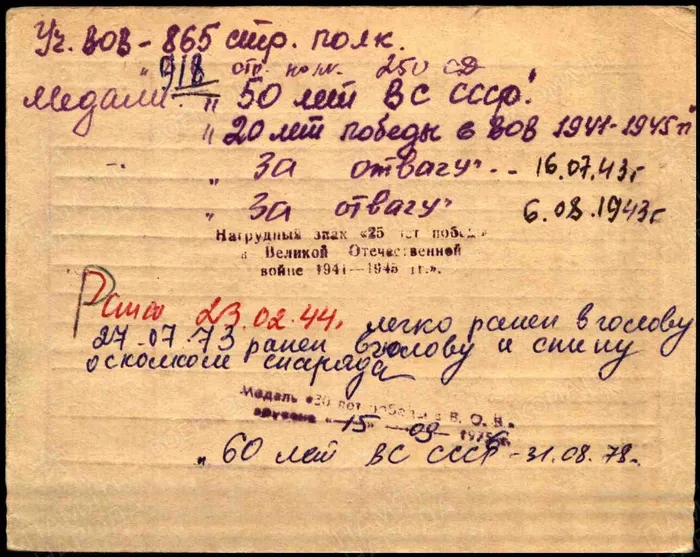 Уч. ВОВ - 865 стр. полк.
" 918 стр. полк. 250 СД
Медали: "50 лет ВС СССР"
"20 лет победы в ВОВ 1941-1945 гг"
" За отвагу" -- 16.07.43 г
" За отвагу" 6.08.1943 г
Нагрудный знак «25 лет победы
в Великой Отечественной
войне 1941—1945 гг.».
23.02.44. легко ранен в голову
27.07.43 ранен в голову и спину
осколком снаряда
Медаль «30 лет победы в В. О. В.»
вручена «15» 09 1975
" 60 лет ВС СССР - 31.08.78.